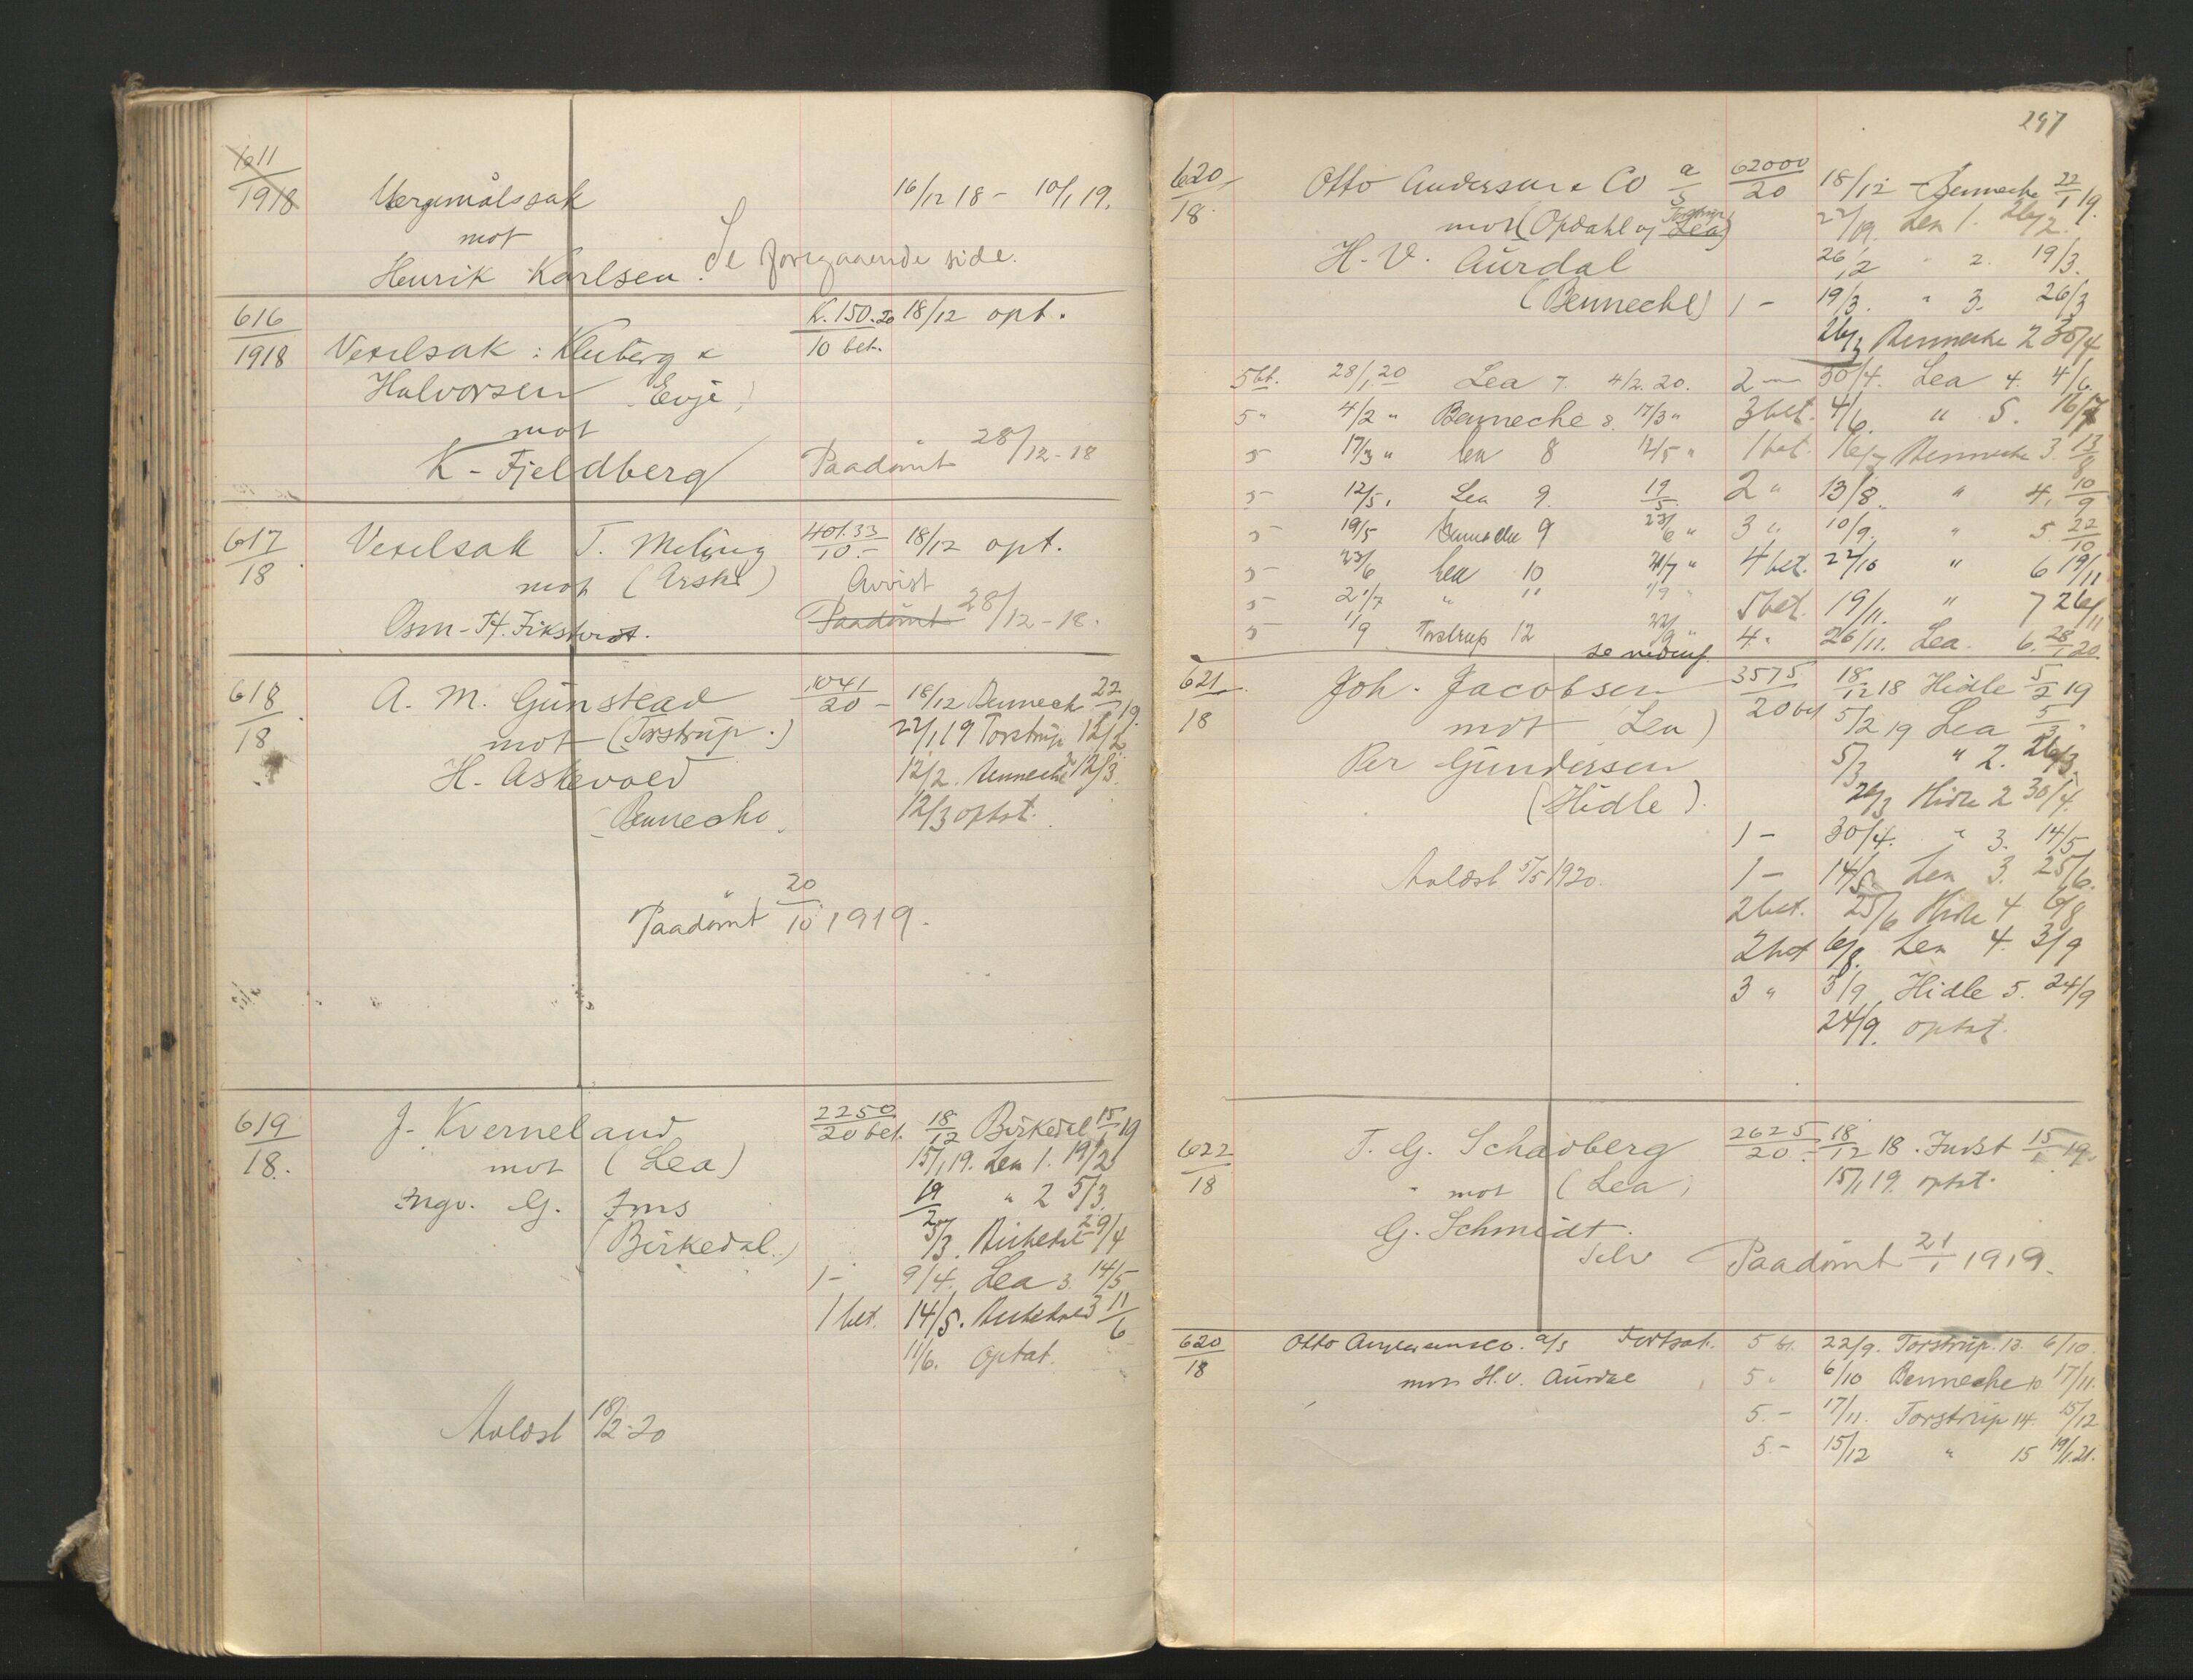 611
1918
Vergemålssak 16/12 18 - 10/1 19.
mot
Henrik Karlsen. Se foregaaende side.
616
1918
K. 150.20 18/12 opt.
10 bet.
Vexelsak: Kluberg &
Halvorsen Evje)
mot
K. Fjeldberg Paadömt 28/12-18
617
18
Vexelsak T. Meling 401.33/10.- 18/12 opt.
mot (Arske) Avvist
Osm. Fikstvedt. Paadömt 28/12-18.
618
18
A. M. Gunstead 1041/20 - 18/12 Bennech 22/1 19.
mot (Torstrup.) 22/1 19 Torstrup 12/2
H. Askevold 12/2. Benneche 12/3.
Bennecho 12/3 optat.
Paadömt 20/10 1919.
619
18.
J. Kverneland 2250/20 bet. 18/12 Birkedal 15/1 19
mot (Lea) 15/1 19. Lea 1. 19/2
Ingv. G. Ims 19/2 " 2 5/3
(Birkedal.) 5/3. Birkedal 2 9/4
1 - 9/4. Lea 3. 14/5
1 bet. 14/5. Birkedal 3 11/6
11/6. optat.
Avlöst 18/2-20
297
620
18.
Otto Andersen & Co a/s 62000/20 18/12 - Bennecke 22/1 19.
mot (Opdahl og Lea) Torstrup 22/1 19. Lea 1. 26/2.
H. V. Aurdal 26/2 " 2. 19/3.
(Benneche) 1 - 19/3. " 3. 26/3
26/3 Bennecke 2 30/4
5 bt. 28/1 20 Lea 7. 4/2. 20. 2 - 30/4. Lea 4. 4/6.
5 " 4/2 " Benneche 8. 17/3 " 3 bet. 4/6. " 5. 16/7
5 17/3 " Lea 8 12/5 " 1 bet. 16/7 Bennecke 3. 13/8
5 - 12/5. Lea 9. 19/5. 2 " 13/8. " 4. 10/9
5 19/5 Benneche 9 23/6 " 3 " 10/9. " 5. 22/10
5 - 23/6 Lea 10 21/7 " 4 bet. 22/10 " 6 19/11
5 - 21/7 " 11 1/9 " 5 bet. 19/11. " 7 26/11
5 1/9 Torstrup 12 22/9 " 4 " 26/11. Lea. 6. 28/1 20.
se nedenf.
621
18
Joh. Jacobsen 3575/20 bet 18/12 18 Hidle 5/2 19
mot Lea) 5/2 19 Lea 5/3 "
Per Gundersen 5/3 " 2. 26/3.
(Hidle). 26/3 Hidle 2 30/4.
1 - 30/4. " 3. 14/5
Avlöst 5/5 1920. 1 - 14/5. Lea 3. 25/6.
2 bet. 25/6 Hidle 4 6/8
2 bet 6/8. Lea 4. 3/9
3 " 3/9 Hidle 5. 24/9
24/9. optat.
622
18
T. G. Schadberg 2625/20.- 18/12 18. Indst 15/1 19.
mot (Lea) 15/1 19. optat.
G. Schmidt.
selv Paadömt 21/1 1919.
620
18
Otto Andersen & Co. a/s Fortsat. 5 bt. 22/9. Torstrup. 13. 6/10.
mot H.V. Aurdal 5 " 6/10 Benneche 10. 17/11.
5.- 17/11. Torstrup 14. 15/12
5.- 15/12 " 15 19/1.21.